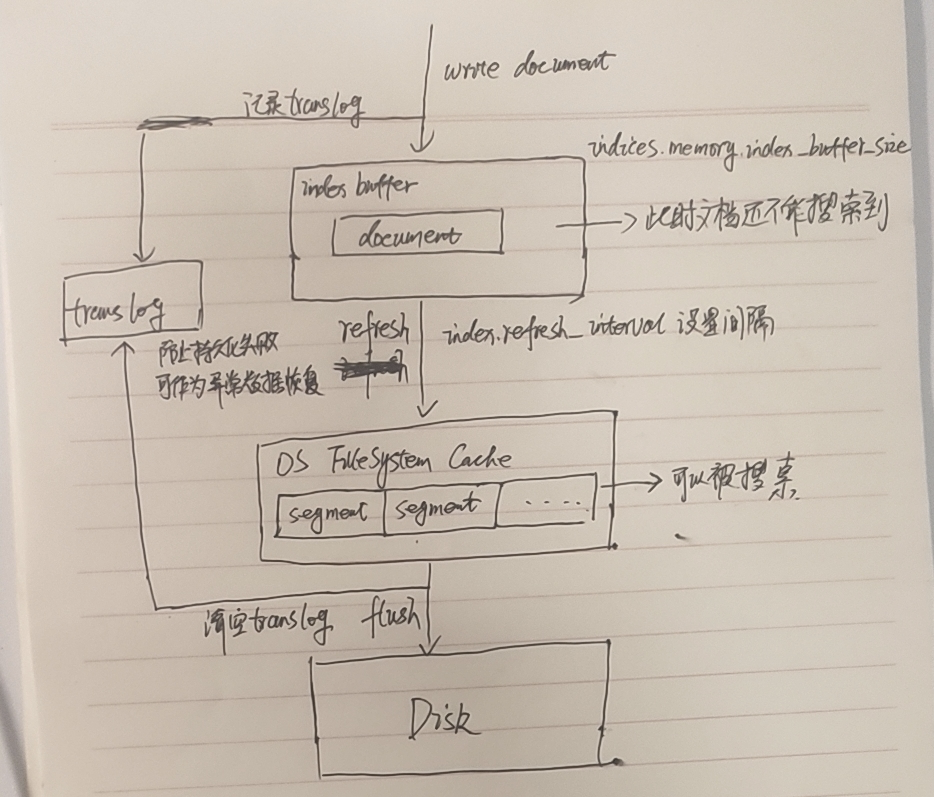 write document
记录translog
indices.memory.index_buffer_size
index buffer
document
此时文档还不能搜索到
translog
refresh
index.refresh_interval 设置间隔
防止持久化失败
可作为异常数据恢复
OS FileSystem Cache
segment segment .....
可以被搜索
清空translog flush
Disk